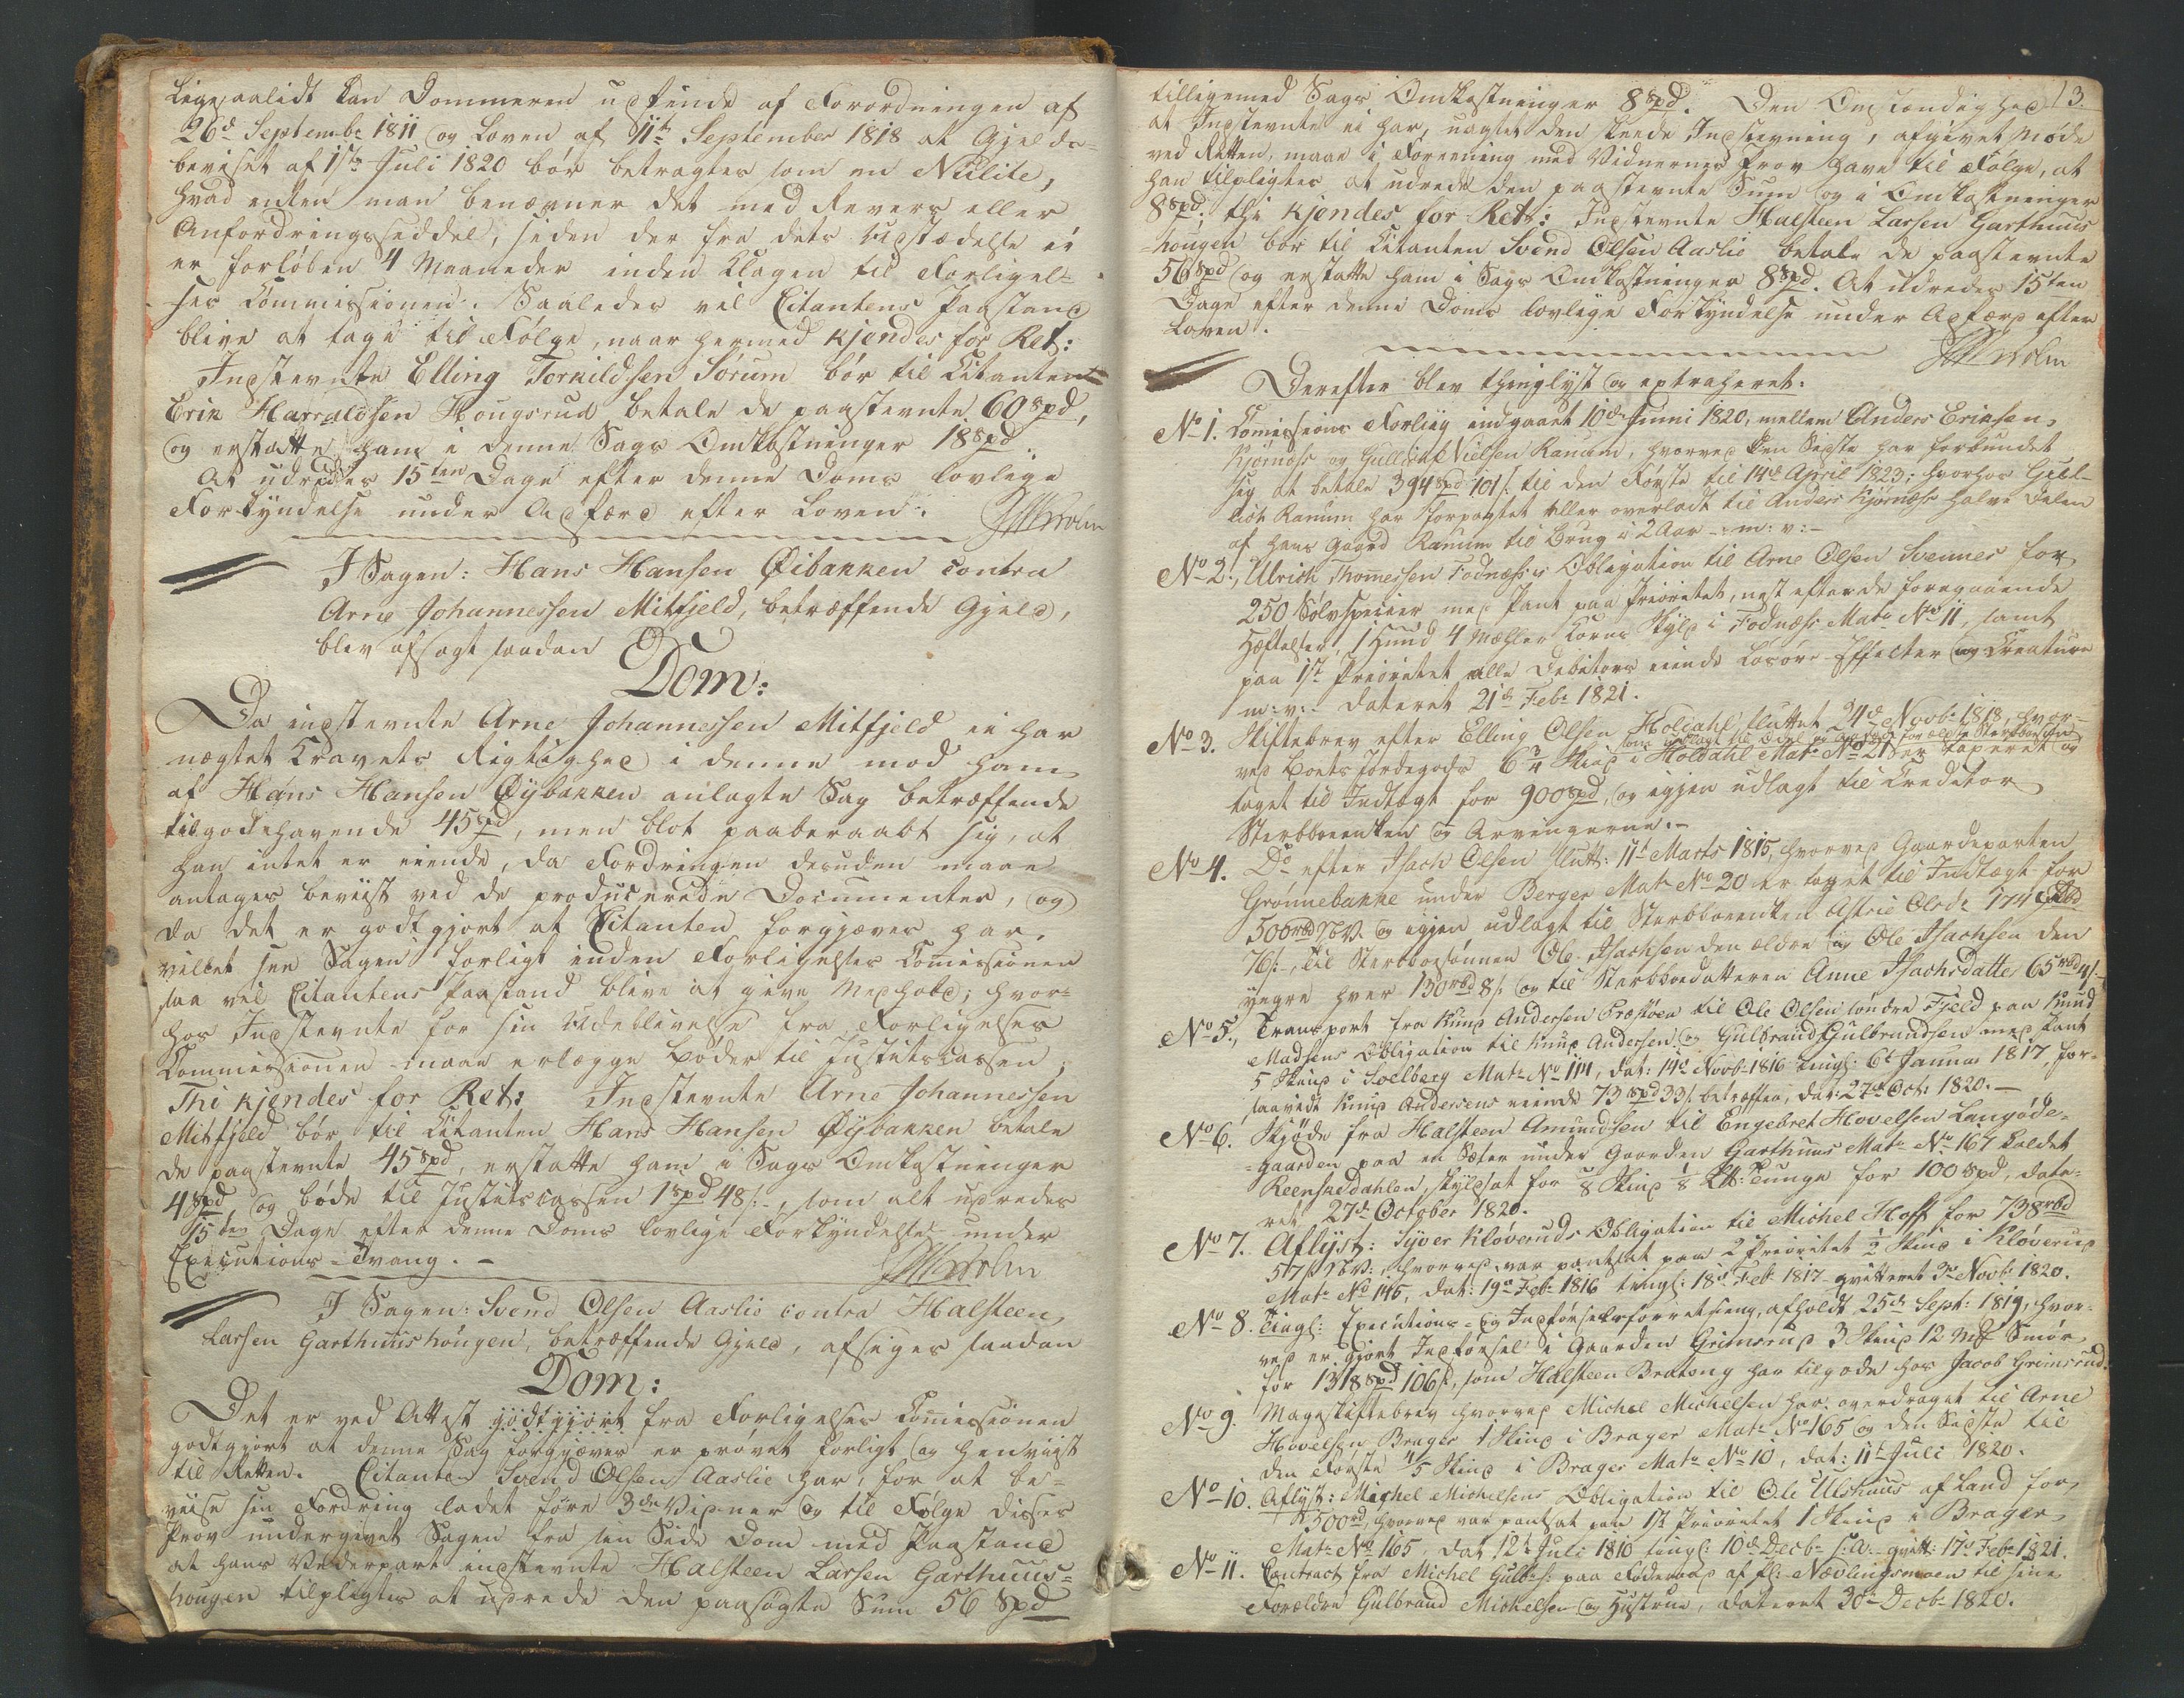 Ligesaalidt kan Dommeren udfinde af Forordningen af
26de Septembr 1811 og Loven af 11te September 1818 at Gjelds-
beviset af 1ste Juli 1820 bør betragtes som en Nulite,
hvad enten man benævner det med Revers eller
Anfordringsseddel, siden der fra dets Udstædelse ei
er forløben 4 Maaneder inden Klagen til Forligel-
ses Commissionen. Saaledes vil Citantens Paastand
blive at tage til Følge, naar hermed kjendes for Ret:
Indstevnte Elling Torkildsen Sørum bør til Citanten
Erik Harraldsen Hougsrud betale de paastevnte 60 Spd,
og erstatte ham i denne Sags Omkostninger 18 Spd.
At udredes 15ten Dage efter denne Doms lovlige
Forkyndelse under Adfærd efter Loven.
I Sagen: Hans Hansen Øibakken contra
Arne Johannessen Mitfjeld, betræffende Gjeld,
blev afsagt saadan
Dom:
Da indstevnte Arne Johannessen Mitfjeld ei har
nægtet Kravets Rigtighed i denne mod ham
af Hans Hansen Øybakken anlagte Sag betræffende
tilgodehavende 45 Spd, men blot paaberaabt sig, at
han intet er eiende, da Fordringen desuden maae
antages beviist ved de producerede Documenter, og
da det er godtgjort at Citanten forgjæves har
villet see Sagen forligt inden Forligelses Comissionen
saa vil Citantens Paastand blive at give Medhold; hvor-
hos Indstevnte for sin Udeblivelse fra Forligelses
Commissionen maae erlægge Bøder til Justitscassen;
Thi kjendes for Ret: Indstevnte Arne Johannessen
Mitfjeld bør til Citanten Hans Hansen Øybakken betale
de paastevnte 45 Spd, erstatte ham i Sags Omkostninger
4 Spd og bøde til Justitscassen 1 Spd 48 s:, som alt udredes
15ten Dage efter denne Doms lovlige Forkyndelse under
Executions-Tvang.
I Sagen: Svend Olsen Aaslie contra Halsteen
Larsen Garthuushougen, betræffende Gjeld, afsiges saadan
Dom:
Det er ved Attest godtgjort fra Forligelses Comissionen
godtgjort at denne Sag forgjæves er prøvet forligt og henviist
til Retten. Citanten Svend Olsen Aaslie har, for at be-
viise sin Fordring ladet føre 3de Vidner og til Følge disses
Prov undergivet Sagen fra sin Side Dom med Paastand
at hans Vederpart indstevnte Halsteen Larsen Garthuus-
hougen tilpligtes at udrede den paasøgte Sum 56 Spd
3.
tilligemed Sags Omkostninger 8 Spd. Den Omstændighed
at Indstevnte ei har, uagtet den skeede Indstevning, afgivet Møde
ved Retten, maae i Forening med Vidnernes Prov have til Følge, at
han tilpligtes at udrede den paastevnte Sum og i Omkostninger
8 Spd. Thi kjendes for Ret: Indstevnte Halsteen Larsen Garthuus-
hougen bør til Citanten Svend Olsen Aaslie betale de paastevnte
56 Spd og erstatte ham i Sags Omkostninger 8 Spd. At udredes 15ten
Dage efter denne Doms lovlige Forkyndelse under Adfærd efter
Loven.
Derefter blev thinglyst og extraheret:
No 1. Comissions Forliig indgaaet 10de Juni 1820, mellem Anders Eriksen
Kjørnæss og Gulleich Nielsen Ranum, hvorved den Sidste har forbundet
sig at betale 394 Spd 101 s: til den Første til 14de April 1823; hvorhos Gul-
leich Ranum har forpagtet eller overladt til Anders Kjørnæss halve Delen
af hans Gaard Ranum til Brug i 2 Aar m: v:
No 2., Ulrich Thomessen Fodnæss's Obligation til Arne Olsen Svennes for
250 Sølvspecier med Pant paa Prioritet, nest efter de foregaaende
Hæftelser, 1 Hund 4 Mæhler Korns Skyld i Fodnæss Matr No 11, samt
paa 1ste Prioritet alle Debitors eiende Løsøre Effecter og Creature
m: v: dateret 21de Febr 1821.
No 3. Skiftebrev efter Elling Olsen Holdahl sluttet 24de Novbr 1818, hvor-
ved Boets Jordegods 6 3/4 Skind i Holdahl Matr No 21 er taxeret og
taget til Indtægt for 900 Spd, og igjen udlagt til Creditor
Sterboeenken og Arvingerne.
No 4. Do efter Isach Olsen slutt: 11te Marts 1815, hvorved Gaardeparten
Grønnebakke under Berger Matr No 20 er taget til Indtægt for
500 rbd NV. og igjen udlagt til Sterboeenken Astrie Olsdr 174 rbd
76 s:, til Sterboesønnen Ole Isachsen den ældre og Ole Isachsen den
yngre hver 130 rbd 8 s: og til Sterboedatteren Anne Isachsdatter 65 rbd 4 s:
No 5., Transport fra Knud Andersen Præstøen til Ole Olsen søndre Fjeld paa Knud
Madsens Obligation til Knud Andersen og Gulbrand Gulbrandsen med Pant
5 Skind i Soelberg Matr No 114, dat: 14de Novbr 1816 tingl: 6te Januar 1817, for-
saavidt Knud Andersens eiende 73 Spd 33 s: betræffer, dat: 27de Oct: 1820.
No 6. Skjøde fra Halsteen Amundsen til Engebret Hovelsen Langøde-
gaarden paa en Sæter under Gaarden Garthuus Matr No 167 kaldet
Reensædahlen, skyldsat for 1/8 Skind 1/8 Lb: Tunge for 100 Spd, date-
ret 27de October 1820.
No 7. Aflyst: Syver Kløveruds Obligation til Michel Hoff for 738 rbd
57 s NV., hvorved var pantsat paa 2 Prioritet 1/2 Skind i Kløverud
Matr No 145, dat: 19de Febr 1816 tingl: 18de Febr 1817 qvitteret 3de Novbr 1820.
No 8. Tingl: Executions- og Indførselsforretning, afholdt 25de Sept: 1819, hvor-
ved er gjort Indførsel i Gaarden Grimsrud 3 Skind 12 Mk Smør
for 1318 Spd 106 s, som Halsteen Bratong har tilgode hos Jacob Grimsrud.
No 9. Mageskiftebrev hvorved Michel Michelsen har overdraget til Arne
Hovelsen Brager 1 Skind i Brager Matr No 165 og den Sidste til
den Første 4/5 Skind i Brager Matr No 10, dat: 11te Juli 1820.
No 10. Aflyst: Michel Michelsens Obligation til Ole Ulshuus af Land for
500 rd, hvorved var pantsat paa 1ste Prioritet 1 Skind i Brager
Matr No 165, dat 12te Juli 1810 tingl: 10de Decbr s: A: qvitt: 17de Febr 1821.
No 11. Contract fra Michel Gulbrs: paa Føderaad af Pl: Nævlingsmoen til sine
Forældre Gulbrand Michelsen og Hustrue, dateret 30te Decbr 1820.